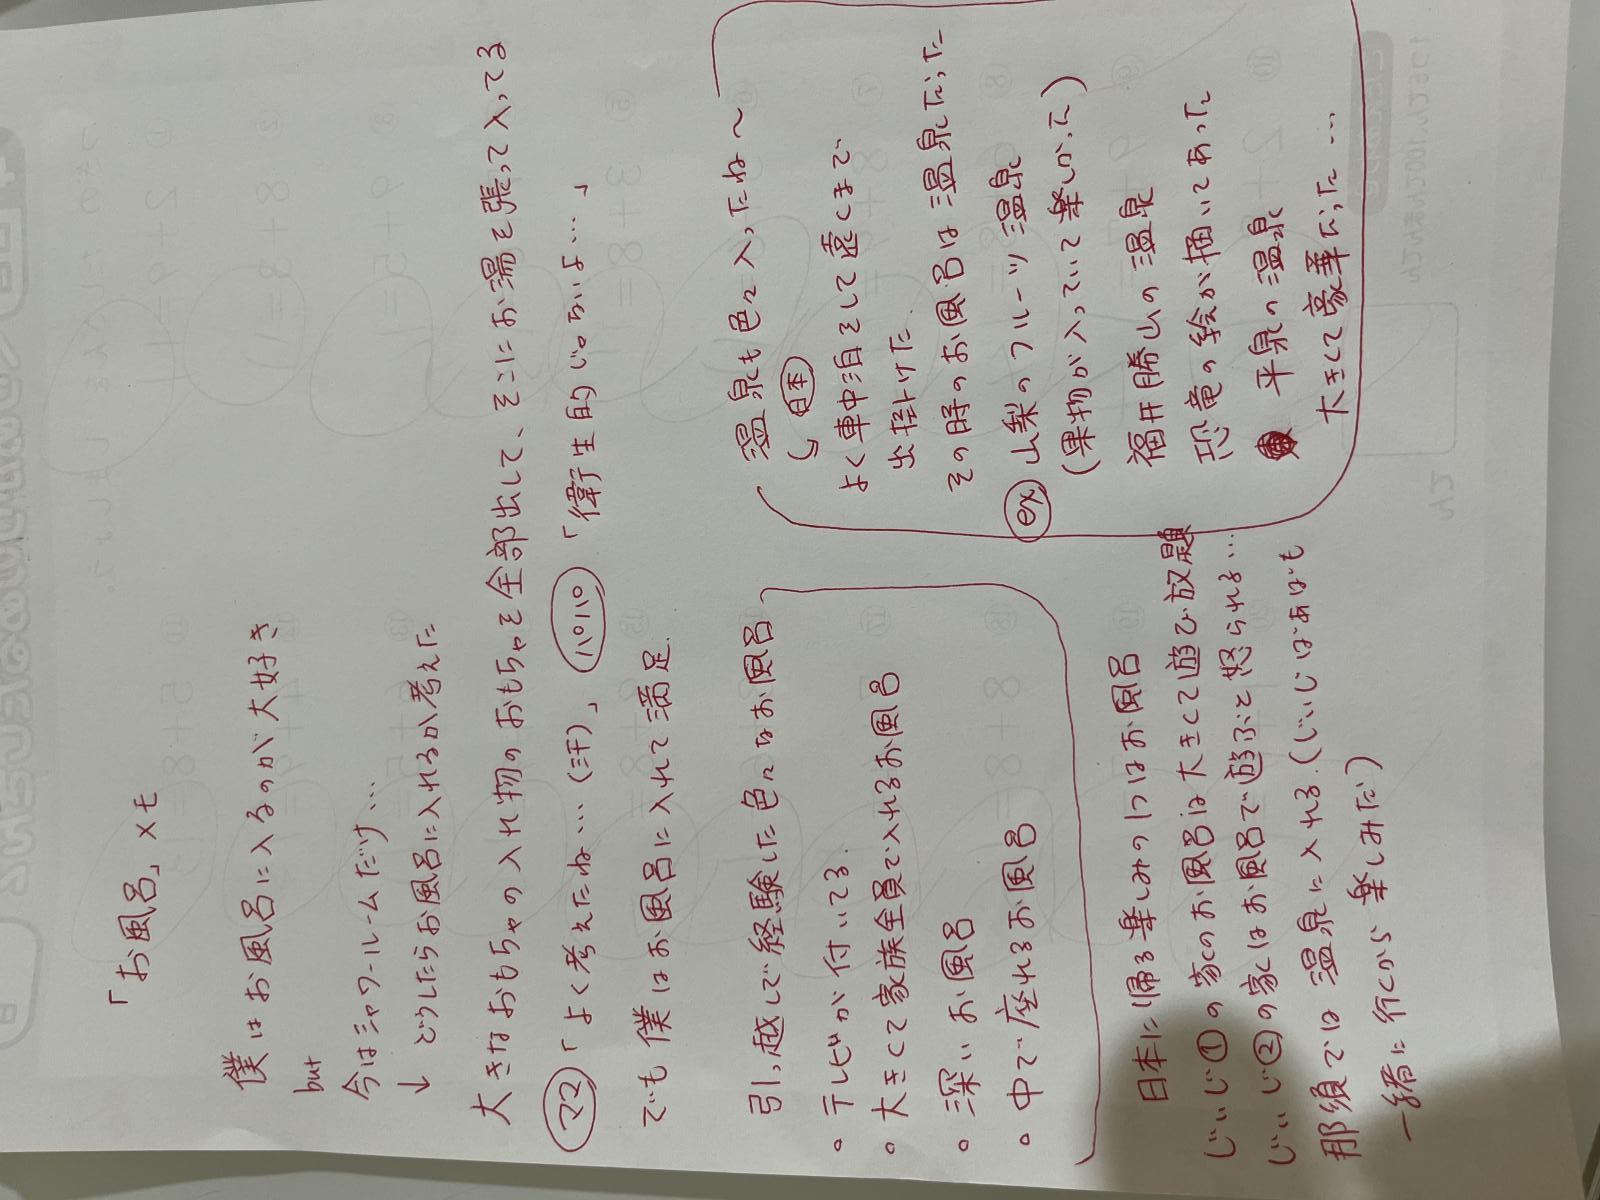 「お風呂」メモ
僕はお風呂に入るのが大好き
but
今はシャワールームだけ…
↓ どうしたらお風呂に入れるか考えた
大きなおもちゃの入れ物のおもちゃを全部出して、そこにお湯を張って入ってる
ママ「よく考えたね…(汗)」 パパ「衛生的じゃないよ…」
でも僕はお風呂に入れて満足.
引っ越しで経験した色々なお風呂
• テレビが付いてる.
• 大きくて家族全員で入れるお風呂
• 深いお風呂
• 中で座れるお風呂
温泉も色々入ったね〜
↳ 日本
よく車中泊をして遠くまで
出掛けた.
その時のお風呂は温泉だった
ex 山梨のフルーツ温泉
(果物が入っていて楽しかった)
福井勝山の温泉
恐竜の絵が描いてあった
平泉の温泉
大きくて豪華だった…
日本に帰る楽しみの1つはお風呂
じぃじ①の家のお風呂は大きくて遊び放題
じぃじ②の家はお風呂で遊ぶと怒られる…
那須では温泉に入れる.(じぃじばあばも
一緒に行くから楽しみだ)